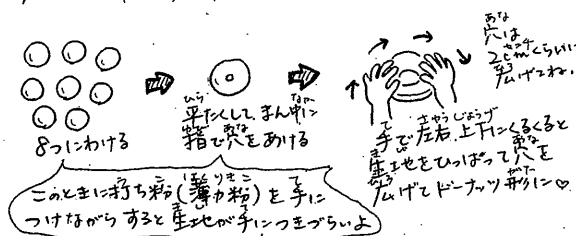 8つにわける
平たくして、まん中に
箸で穴をあける
穴は
2cmくらいに
広げてね。
手で左右、上下にくるくると
生地をひっぱって穴を
広げてドーナッツ形に♡
このときに打ち粉(薄力粉)を手に
つけながらすると生地が手につきづらいよ